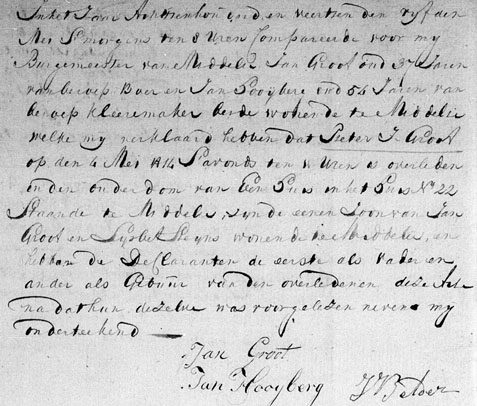 In het Jaar Achttienhonderd en veertien den vyf den
Mei Smorgens ten 8 Uren Compareerde voor my
Burgemeester van Middelie Jan Groot oud 37 Jaren
van beroep Boer en Jan Hooyberg oud 54 Jaren van
beroep kleermaker beide wonende te Middelie
welke my verklaard hebben dat Pieter J. Groot
op den 4 Mei 1814 Savonds ten 11 Uren is overleden
in den ouderdom van Een in het Huis No 22
Staande te Middelie, zynde eenen Zoon van Jan
Groot en Lysbet Heyns wonende te Middelie, en
hebben de Declaranten de eerste als Vader en
ander als Gebuur van den overledenen deze Acte
na dat hun dezelve was voorgelezen nevens my
onderteekend
Jan Groot
Jan Hooyberg